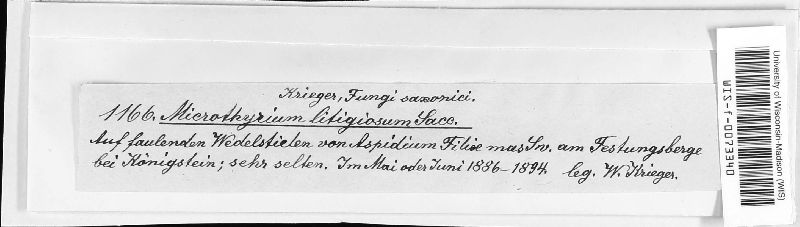 Krieger, Fungi saxonici.
1166. Microthyrium litigiosum Sacc.
Auf faulenden Wedelstielen von Aspidium Filix mas Sw. am Festungsberge
bei Königstein; sehr selten. Im Mai oder Juni 1886–1894. leg. W. Krieger.
University of Wisconsin-Madison (WIS)
WIS-f-0073340